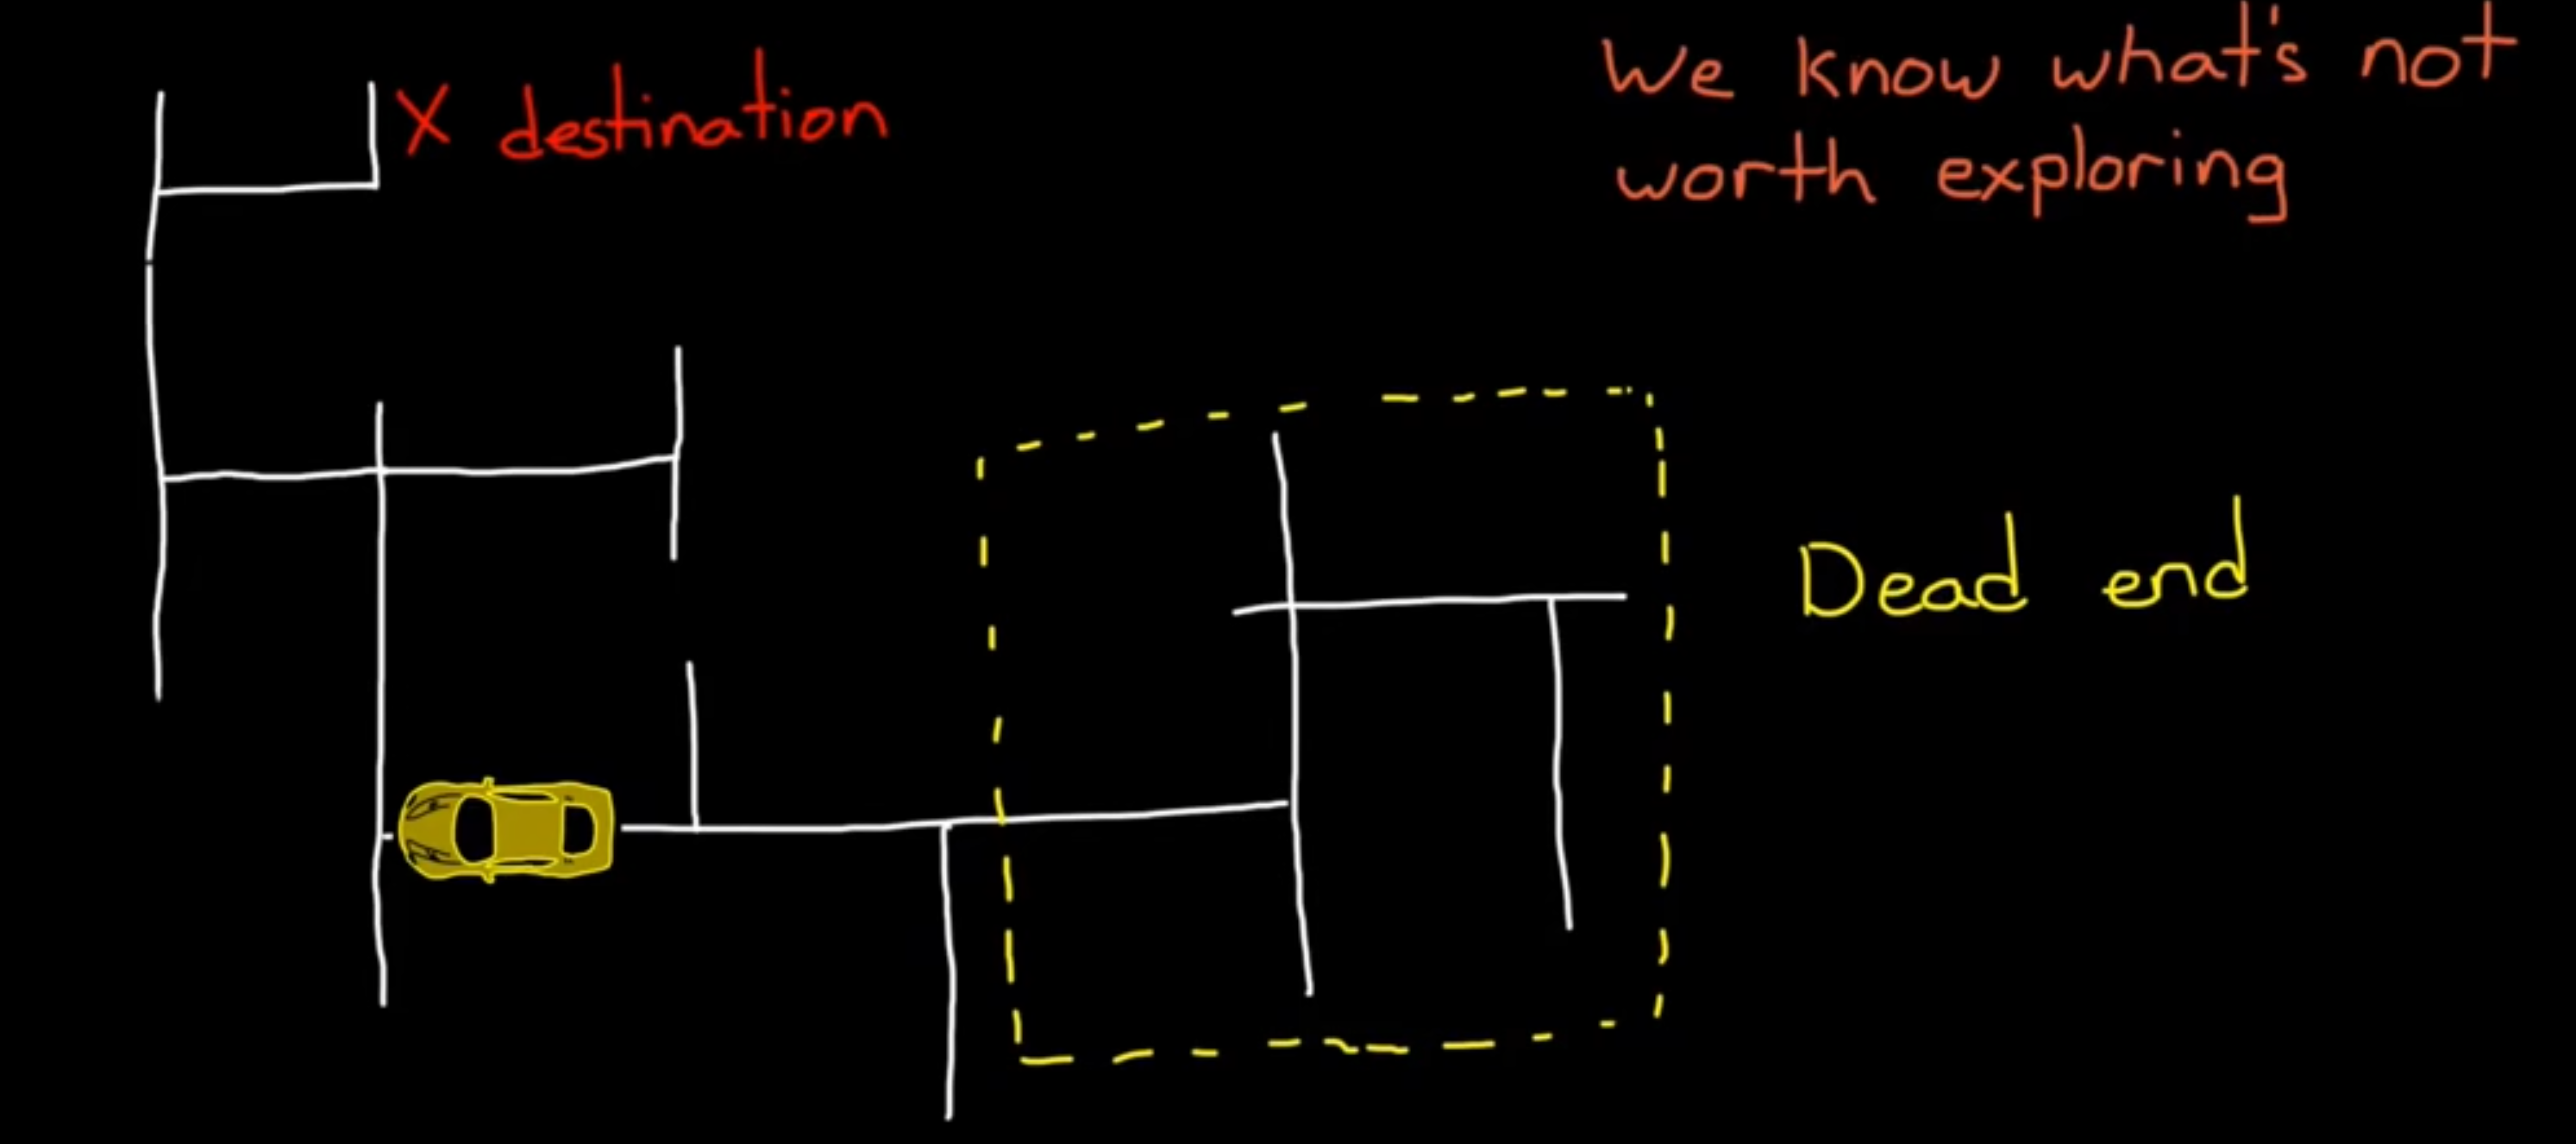 X destination
We know what's not
worth exploring
Dead end